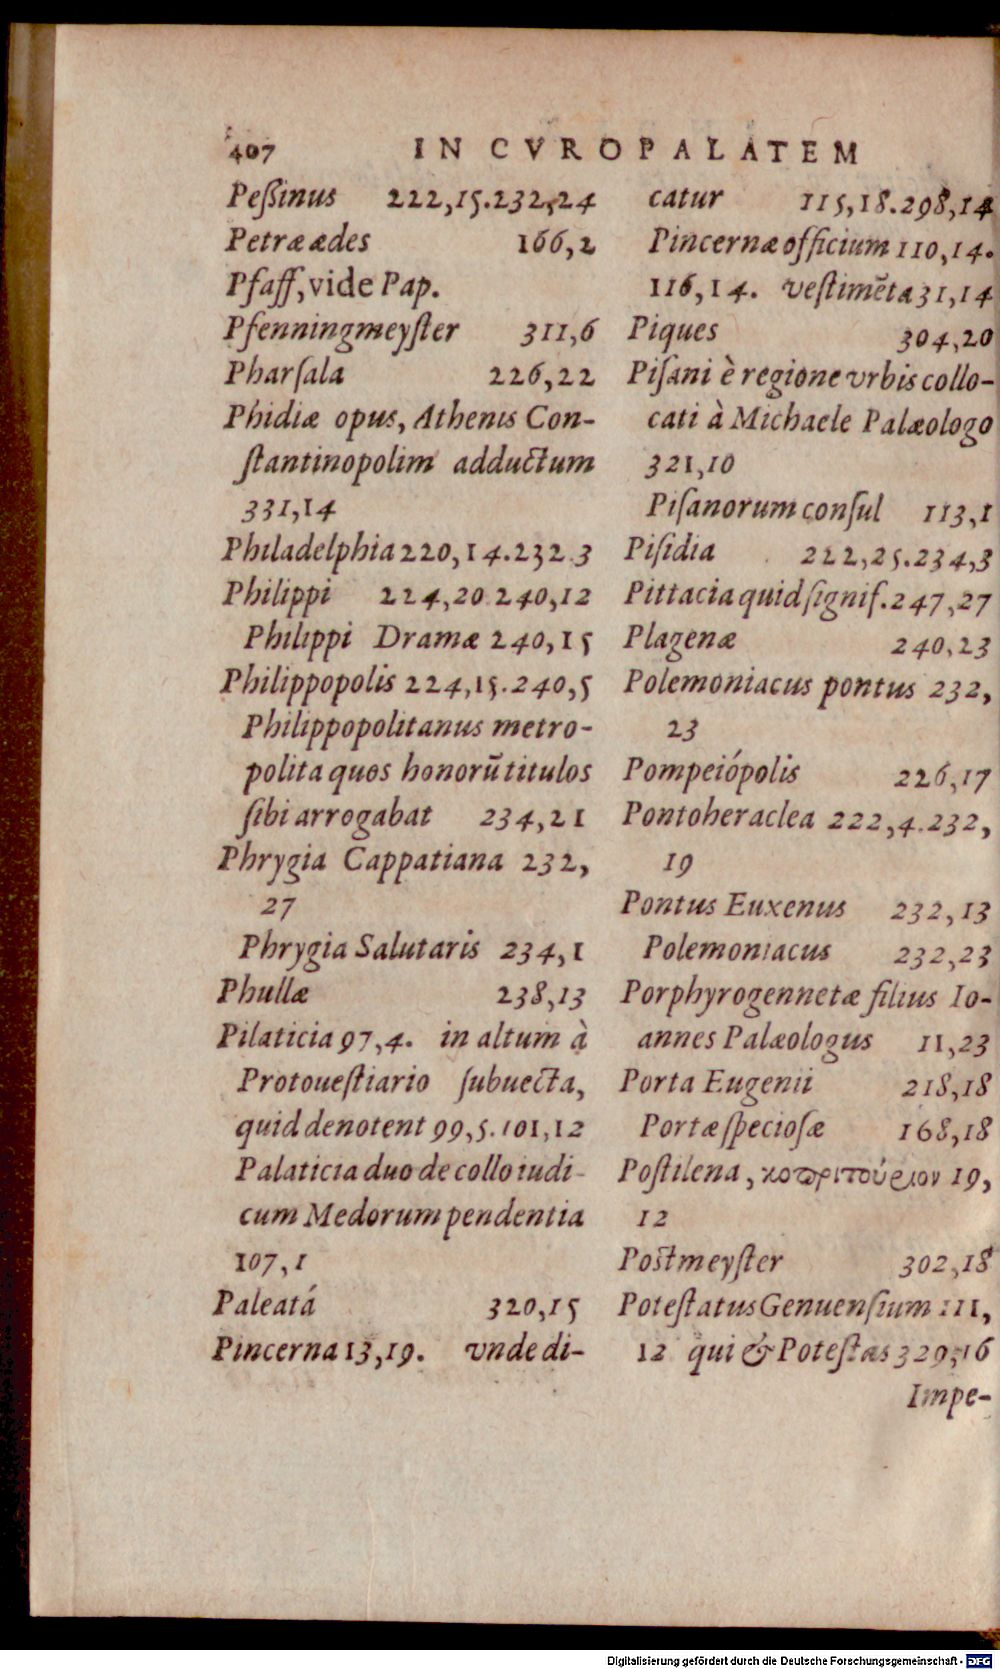 407 IN CVROPALATEM
Peßinus 222,15.232,24
Petræ ædes 166,2
Pfaff, vide Pap.
Pfenningmeyſter 311,6
Pharſala 226,22
Phidiæ opus, Athenis Con-
ſtantinopolim adductum
331,14
Philadelphia 220,14.232.3
Philippi 224,20.240,12
Philippi Dramæ 240,15
Philippopolis 224,15.240,5
Philippopolitanus metro-
polita quos honorũ titulos
ſibi arrogabat 234,21
Phrygia Cappatiana 232,
27
Phrygia Salutaris 234,1
Phullæ 238,13
Pilaticia 97,4. in altum à
Protoueſtiario ſubuecta,
quid denotent 99,5.101,12
Palaticia duo de collo iudi-
cum Medorum pendentia
107,1
Paleatá 320,15
Pincerna 13,19. vnde di-
catur 115,18.298,14
Pincernæ officium 110,14.
116,14. veſtimẽta 31,14
Piques 304,20
Piſani è regione vrbis collo-
cati à Michaele Palæologo
321,10
Piſanorum conſul 113,1
Piſidia 222,25.234,3
Pittacia quid ſignif. 247,27
Plagenæ 240,23
Polemoniacus pontus 232,
23
Pompeiópolis 226,17
Pontoheraclea 222,4.232,
19
Pontus Euxenus 232,13
Polemoniacus 232,23
Porphyrogennetæ filius Io-
annes Palæologus 11,23
Porta Eugenii 218,18
Portæ ſpecioſæ 168,18
Poſtilena, 19,
12
Poſtmeyſter 302,18
Poteſtatus Genuenſium 111,
12 qui & Poteſtas 329,16
Impe-
Digitalisierung gefördert durch die Deutsche Forschungsgemeinschaft - DFG